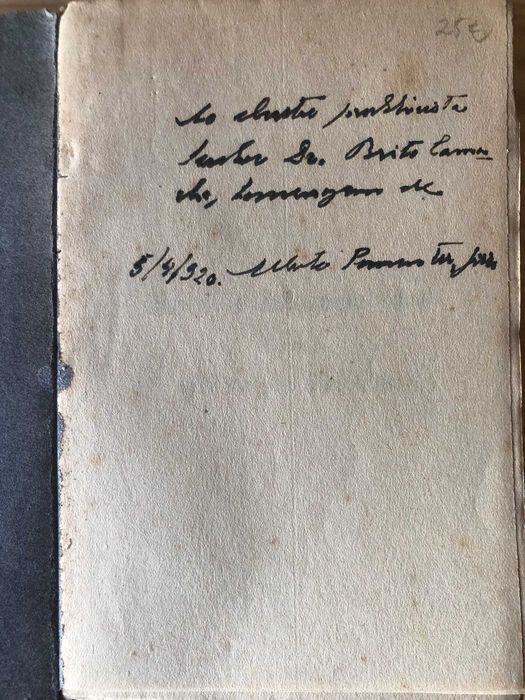 25€
Ao illustre publicista
senhor Dr. Brito Cama-
cho, homenagem de
5/4/920. Alberto